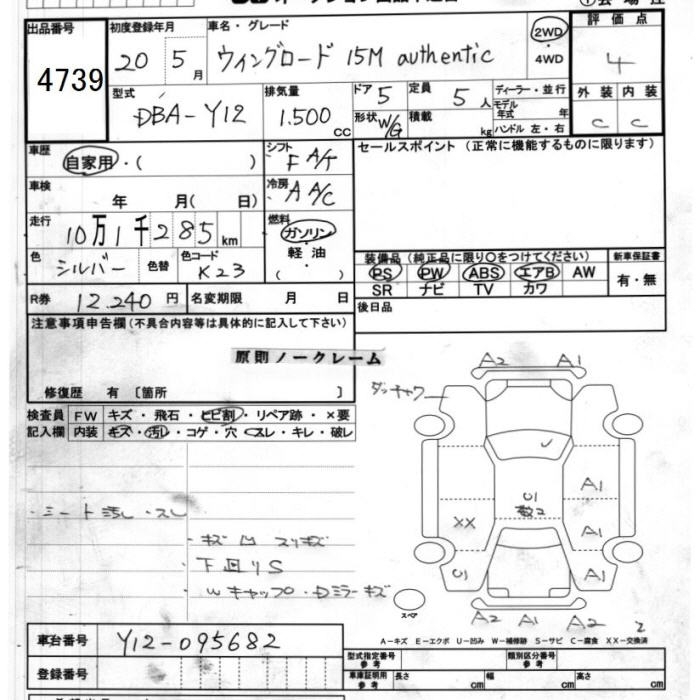 出品番号
4739
初度登録年月
20 5 月
車名・グレード
ウイングロード 15M authentic
2WD
・
4WD
評価点
4
外装 内装
C C
型式
DBA-Y12
排気量
1.500 cc
ドア 5
形状 W/G
定員 5 人
積載 kg
ディーラー・並行
モデル年式 年
ハンドル 左・右
車歴
自家用・( )
シフト F A/T
冷房 A A/C
セールスポイント (正常に機能するものに限ります)
車検 年 月( 日)
走行
10万1千285km
燃料
ガソリン
・
軽油
( )
色 シルバー
色替
色コード K23
装備品 (純正品に限り○をつけてください)
PS PW ABS エアB AW
SR ナビ TV カワ
新車保証書
有・無
R券 12.240 円
名変期限 月 日
後日品
注意事項申告欄(不具合内容等は具体的に記入して下さい)
原則ノークレーム
修復歴 有 〔箇所 〕
検査員
記入欄
FW キズ・飛石・ヒビ割・リペア跡・×要
内装 キズ・汚レ・コゲ・穴・スレ・キレ・破レ
・シート汚レ・スレ
・キズ 凹 スリキズ
下回りS
Wキャップ・Dミラーキズ
A2 A1
A1
U1
XX
A1
U1
A1
スペア
A2 A1 A2 2
A-キズ E-エクボ U-凹み W-補修跡 S-サビ C-腐食 XX-交換済
車台番号
Y12-095682
登録番号
型式指定番号 参考
類別区分番号 参考
車庫証明用 参考
長さ cm
幅 cm
高さ cm